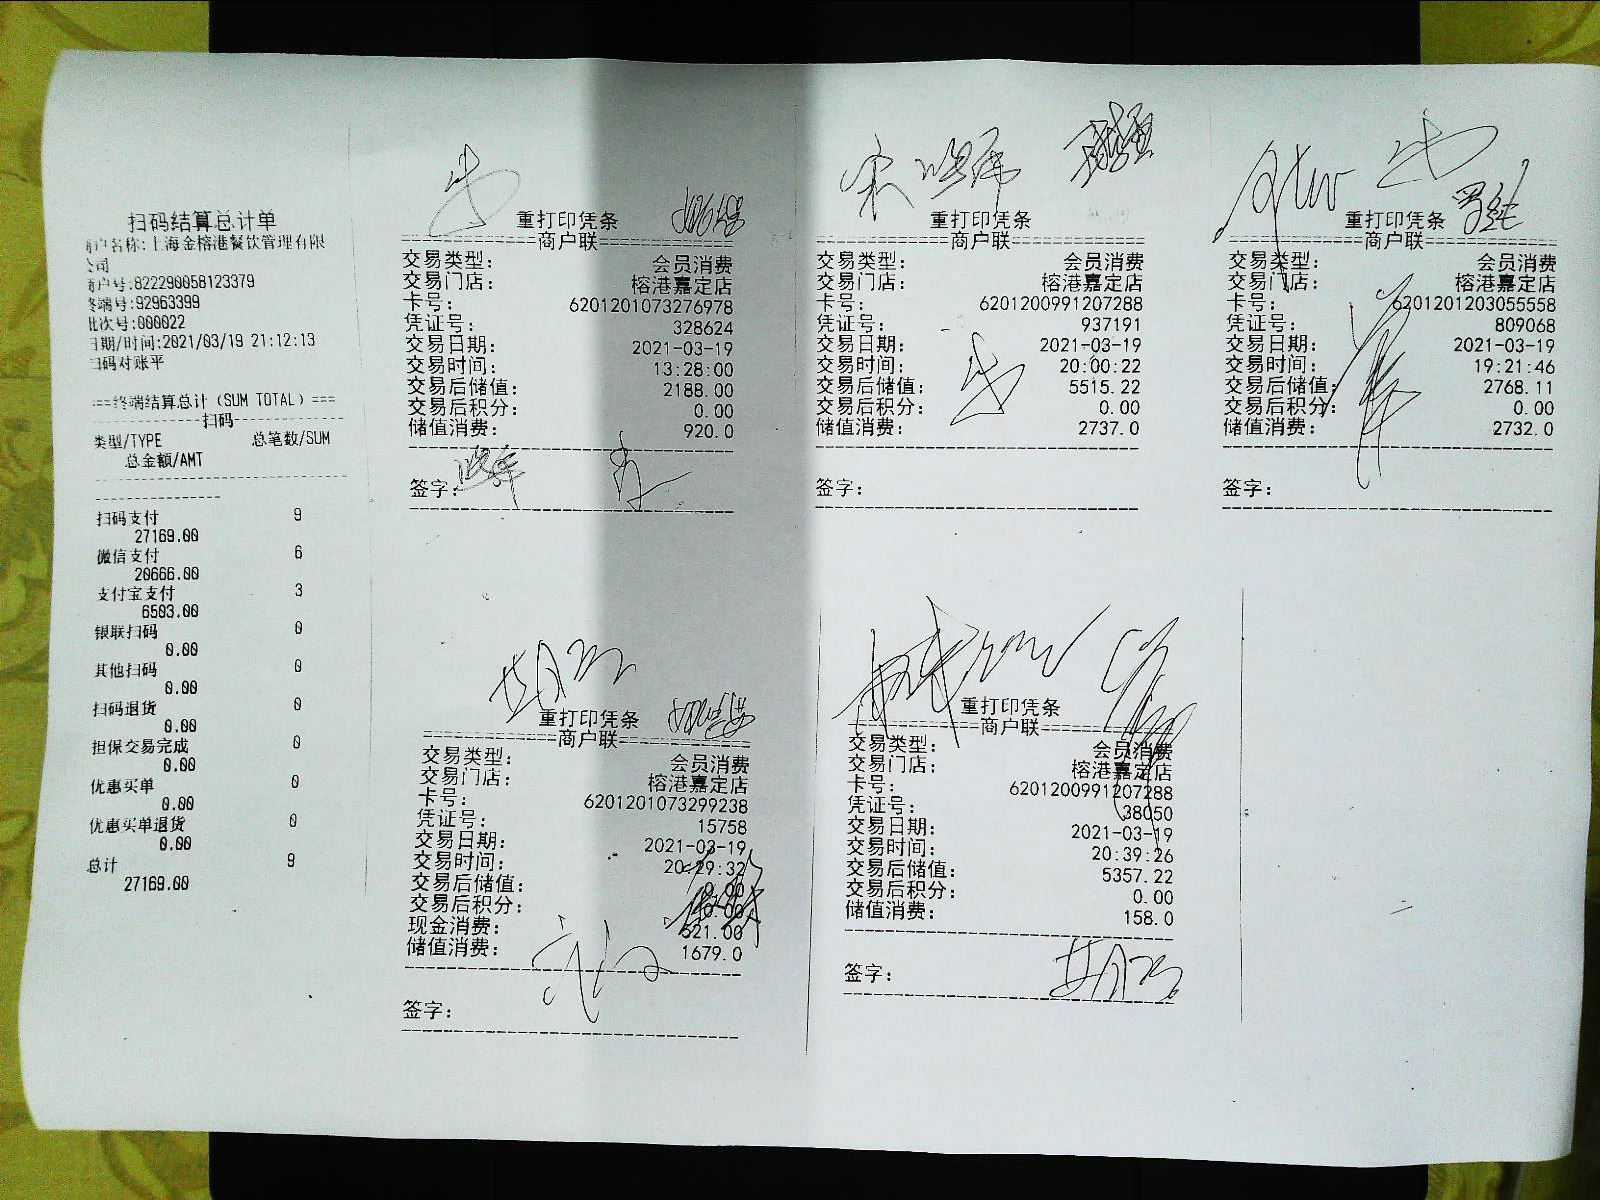 扫码结算总计单
商户名称:上海金榕港餐饮管理有限
公司
商户号:822290058123379
终端号:92963399
批次号:000022
日期/时间:2021/03/19 21:12:13
扫码对账平
===终端结算总计(SUM TOTAL)===
----------------扫码----------------
类型/TYPE 总笔数/SUM
总金额/AMT
扫码支付 9
27169.00
微信支付 6
20666.00
支付宝支付 3
6503.00
银联扫码 0
0.00
其他扫码 0
0.00
扫码退货 0
0.00
担保交易完成 0
0.00
优惠买单 0
0.00
优惠买单退货 0
0.00
总计 9
27169.00
重打印凭条
商户联
交易类型: 会员消费
交易门店: 榕港嘉定店
卡号: 6201201073276978
凭证号: 328624
交易日期: 2021-03-19
交易时间: 13:28:00
交易后储值: 2188.00
交易后积分: 0.00
储值消费: 920.0
签字:
重打印凭条
商户联
交易类型: 会员消费
交易门店: 榕港嘉定店
卡号: 6201200991207288
凭证号: 937191
交易日期: 2021-03-19
交易时间: 20:00:22
交易后储值: 5515.22
交易后积分: 0.00
储值消费: 2737.0
签字:
重打印凭条
商户联
交易类型: 会员消费
交易门店: 榕港嘉定店
卡号: 6201201203055558
凭证号: 809068
交易日期: 2021-03-19
交易时间: 19:21:46
交易后储值: 2768.11
交易后积分: 0.00
储值消费: 2732.0
签字:
重打印凭条
商户联
交易类型: 会员消费
交易门店: 榕港嘉定店
卡号: 6201201073299238
凭证号: 15758
交易日期: 2021-03-19
交易时间: 20:29:32
交易后储值: 0.00
交易后积分: 0.00
现金消费: 521.00
储值消费: 1679.0
签字:
重打印凭条
商户联
交易类型: 会员消费
交易门店: 榕港嘉定店
卡号: 6201200991207288
凭证号: 38050
交易日期: 2021-03-19
交易时间: 20:39:26
交易后储值: 5357.22
交易后积分: 0.00
储值消费: 158.0
签字: